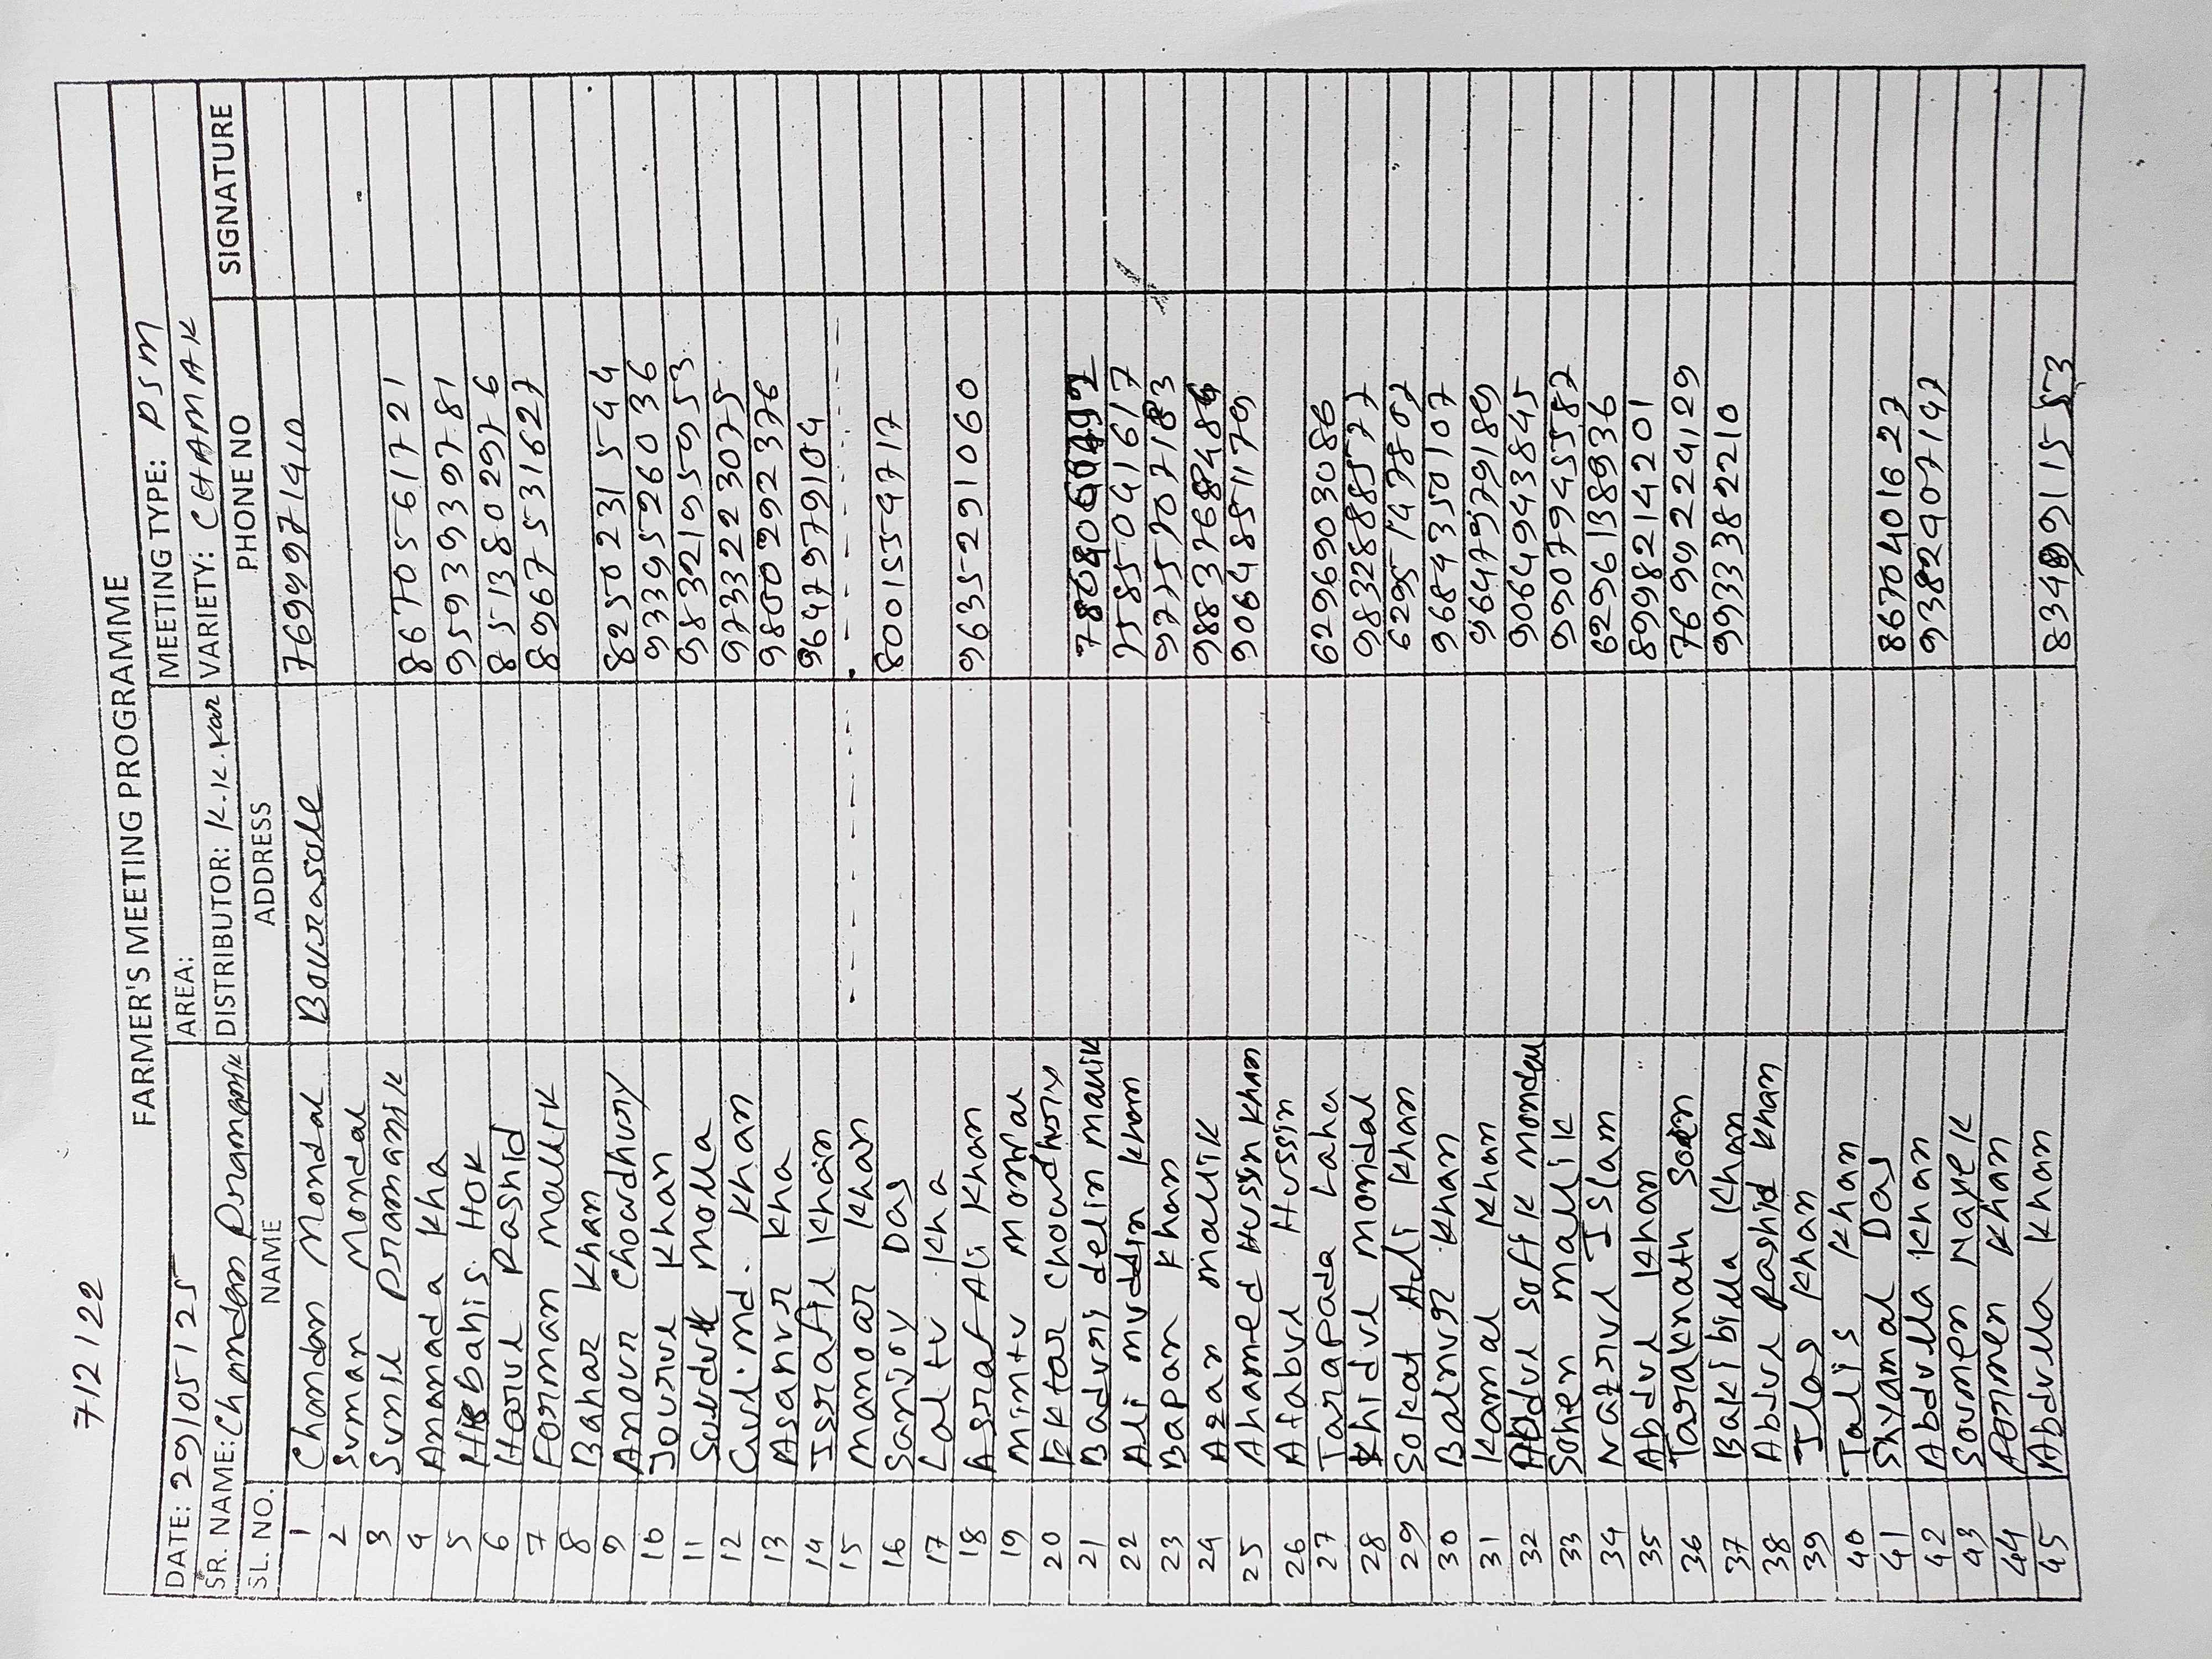 712122
FARMER'S MEETING PROGRAMME
DATE: 29/05/25 AREA: MEETING TYPE: PSM
SR. NAME: Chandan Pramanik DISTRIBUTOR: K.K. Kar VARIETY: CHAMAK
SL. NO. NAME ADDRESS PHONE NO SIGNATURE
1 Chandan Mondal Bourasale 7699971410
2 Suman Mondal
3 Sunil Pramanik 8670561721
4 Ananda Kha 9593939781
5 Hisbahis Hok 8513802976
6 Harul Rashid 8967531627
7 Forman Mallik
8 Bahar Khan 8250231544
9 Anour Chowdhury 9339526036
10 Jourul Khan 9832195953
11 Molla 9733223075
12 Gul. md. Khan 9800292376
13 Asanur Kha 9647979104
14 Israfil Khan
15 Manoar Khan
16 Sanjoy Das 8001554717
17 Laltu Kha
18 Asraf Ali Khan 9635291060
19 Mintu Mondal
20 Ektar Chowdhury
21 Badruj delin Mallik
22 Ali muddin Khan 7585041617
23 Bapan Khan 9775707183
24 Azan Mallik
25 Ahamed Husin Khan 9064851179
26 Afabul Hussin
27 Tarapada Laha 6296903086
28 Khidul Mondal 9832888577
29 Sokat Ali Khan 6295147807
30 Balnur Khan 9684350107
31 Kamal Khan 9647979189
32 Abdul Soffik Mondal 9064943845
33 Sohen Mallik 9907945587
34 Nazrul Islam 6296138936
35 Abdul Khan 8998214201
36 Taraknath 7699224129
37 Bakibilla Khan 9933382210
38 Abdul Rashid Khan
39 Ilas Khan
40 Jalis Khan
41 Shyamal Das 8670401627
42 Abdulla Khan 9382407147
43 Soumen Nayek
44 Pormen Khan
45 Abdulla Khan